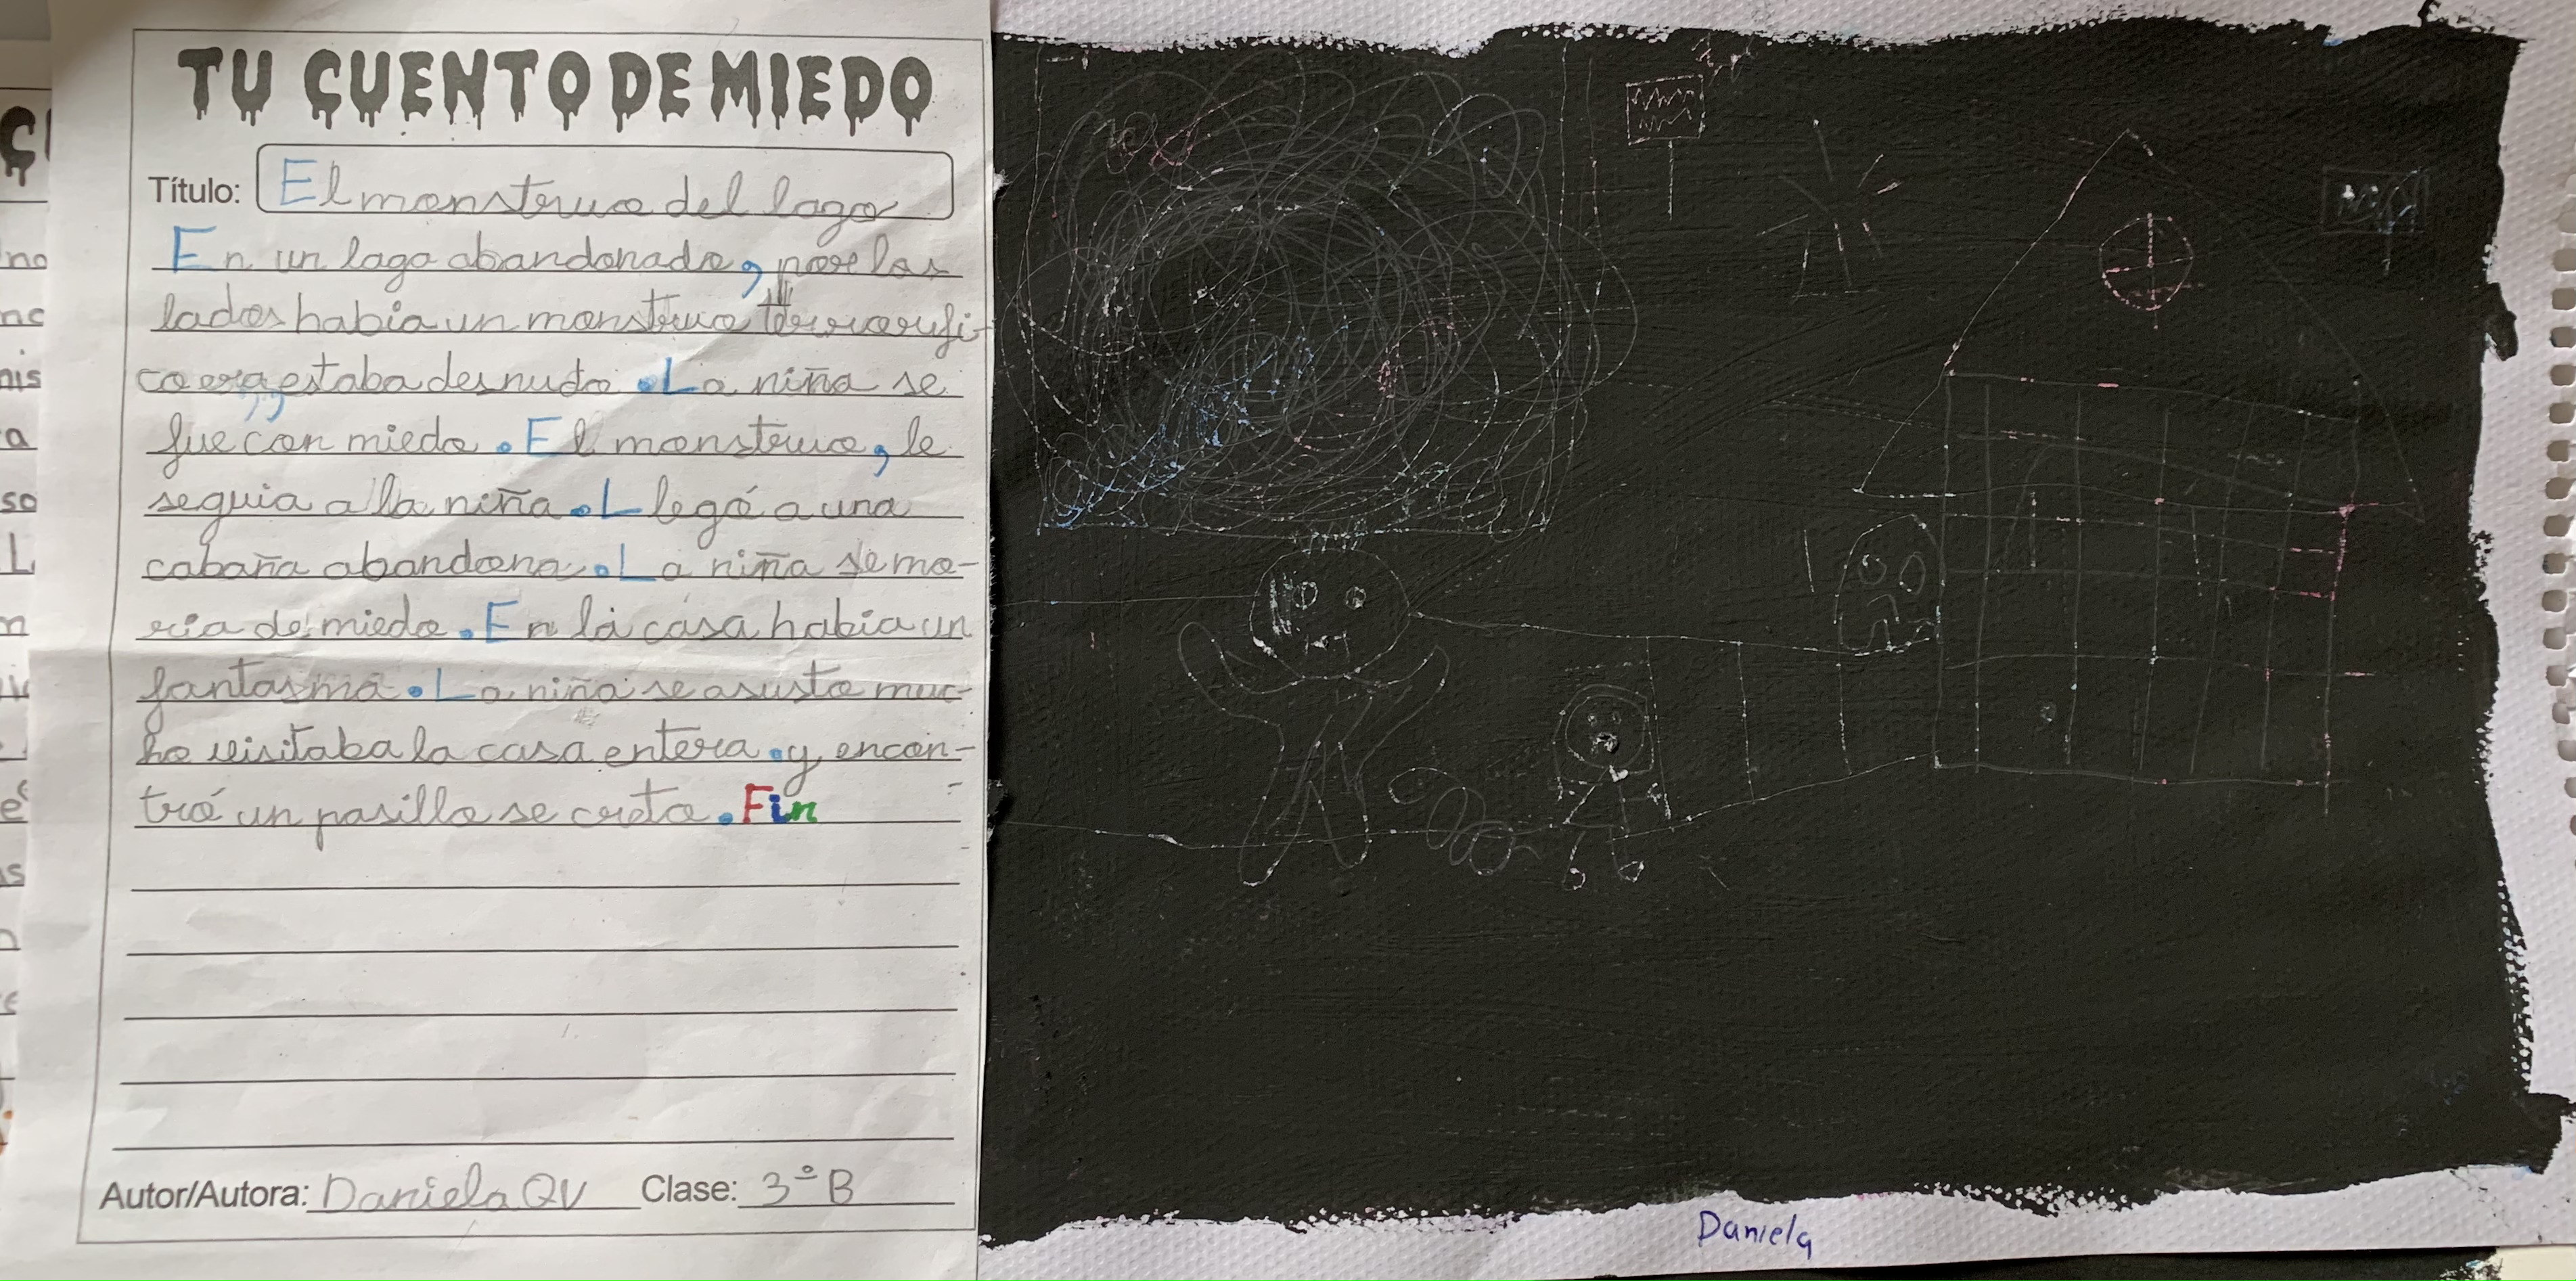 TU CUENTO DE MIEDO
Título: El monstruo del lago
En un lago abandonado, por los
lados habia un monstruo terrorifi-
co era, estaba desnudo. La niña se
fue con miedo. El monstruo, le
seguia a la niña. Llegó a una
cabaña abandona. La niña se mo-
ria de miedo. En la casa habia un
fantasma. La niña se asusto muc-
ho visitaba la casa entera. y encon-
tró un pasillo se creto. Fin
Autor/Autora: Daniela QV Clase: 3º B
Daniela